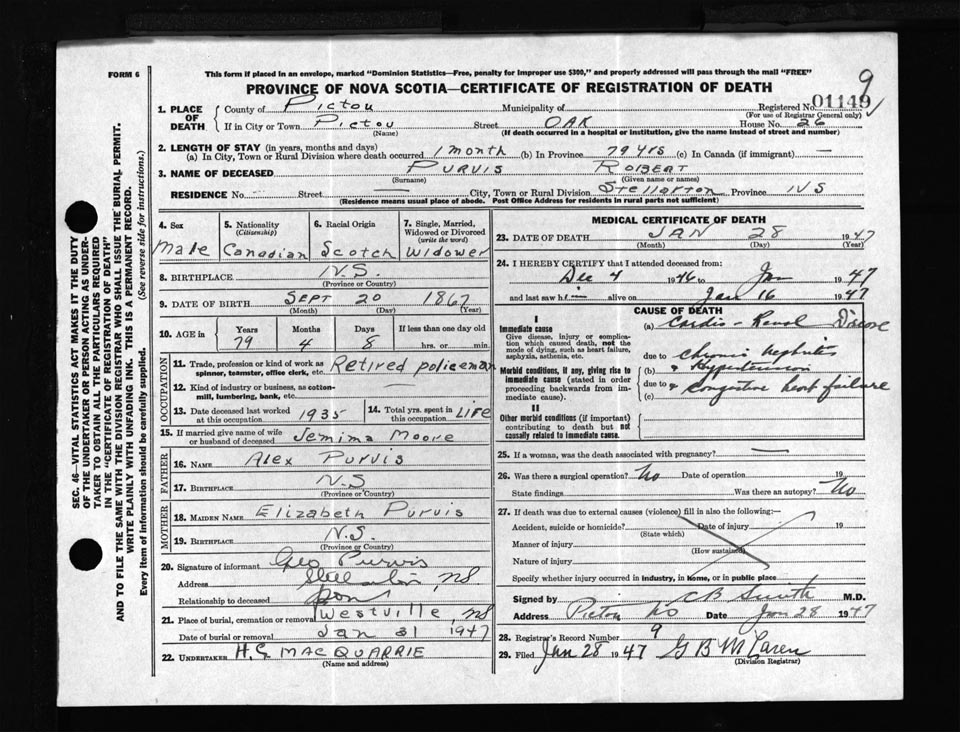 FORM 6
This form if placed in an envelope, marked "Dominion Statistics—Free, penalty for improper use $300," and properly addressed will pass through the mail "FREE"
9
PROVINCE OF NOVA SCOTIA—CERTIFICATE OF REGISTRATION OF DEATH
1. PLACE OF DEATH
County of Pictou Municipality of Registered No. 01149
(For use of Registrar General only)
If in City or Town Pictou Street OAK House No. 26
(Name) (If death occurred in a hospital or institution, give the name instead of street and number)
2. LENGTH OF STAY (in years, months and days)
(a) In City, Town or Rural Division where death occurred 1 month (b) In Province 79 yrs (c) In Canada (if immigrant) —
3. NAME OF DECEASED PURVIS ROBERT
(Surname) (Given name or names)
RESIDENCE No. — Street — City, Town or Rural Division Stellarton Province NS
(Residence means usual place of abode. Post Office Address for residents in rural parts not sufficient)
4. Sex 5. Nationality (Citizenship) 6. Racial Origin 7. Single, Married, Widowed or Divorced (write the word)
Male Canadian Scotch Widower
8. BIRTHPLACE N.S.
(Province or Country)
9. DATE OF BIRTH SEPT 20 1867
(Month) (Day) (Year)
10. AGE in Years Months Days If less than one day old
79 4 8 hrs. or min.
OCCUPATION
11. Trade, profession or kind of work as spinner, teamster, office clerk, etc. Retired policeman
12. Kind of industry or business, as cotton-mill, lumbering, bank, etc. —
13. Date deceased last worked at this occupation 1935 14. Total yrs. spent in this occupation LIFE
15. If married give name of wife or husband of deceased Jemima Moore
FATHER
16. NAME Alex Purvis
17. BIRTHPLACE N.S
(Province or Country)
MOTHER
18. MAIDEN NAME Elizabeth Purvis
19. BIRTHPLACE N.S.
(Province or Country)
20. Signature of informant Geo Purvis
Address Stellarton, NS
Relationship to deceased Son
21. Place of burial, cremation or removal Westville, NS
Date of burial or removal Jan 31 1947
22. UNDERTAKER H.G MACQUARRIE
(Name and address)
MEDICAL CERTIFICATE OF DEATH
23. DATE OF DEATH JAN 28 1947
(Month) (Day) (Year)
24. I HEREBY CERTIFY that I attended deceased from:
Dec 4 1946 to Jan 1947
and last saw him alive on Jan 16 1947
CAUSE OF DEATH
I
Immediate cause
Give disease, injury or complication which caused death, not the mode of dying, such as heart failure, asphyxia, asthenia, etc.
(a) Cardio-Renal Disease
due to chronic nephritis
Morbid conditions, if any, giving rise to immediate cause (stated in order proceeding backwards from immediate cause).
(b) & Hypertension
due to & Congestive heart failure
(c)
II
Other morbid conditions (if important) contributing to death but not causally related to immediate cause.
25. If a woman, was the death associated with pregnancy? —
26. Was there a surgical operation? No Date of operation 19
State findings Was there an autopsy? No
27. If death was due to external causes (violence) fill in also the following:—
Accident, suicide or homicide? Date of injury 19
(State which)
Manner of injury
(How sustained)
Nature of injury
Specify whether injury occurred in industry, in home, or in public place
Signed by CB Smith M.D.
Address Pictou NS Date Jan 28 1947
28. Registrar's Record Number 9
29. Filed Jan 28 1947 G B McLaren
(Division Registrar)
SEC. 46—VITAL STATISTICS ACT MAKES IT THE DUTY
OF THE UNDERTAKER OR PERSON ACTING AS UNDER-
TAKER TO OBTAIN ALL THE PARTICULARS REQUIRED
IN THE "CERTIFICATE OF REGISTRATION OF DEATH"
AND TO FILE THE SAME WITH THE DIVISION REGISTRAR WHO SHALL ISSUE THE BURIAL PERMIT.
WRITE PLAINLY WITH UNFADING INK. THIS IS A PERMANENT RECORD.
Every item of information should be carefully supplied. (See reverse side for instructions.)